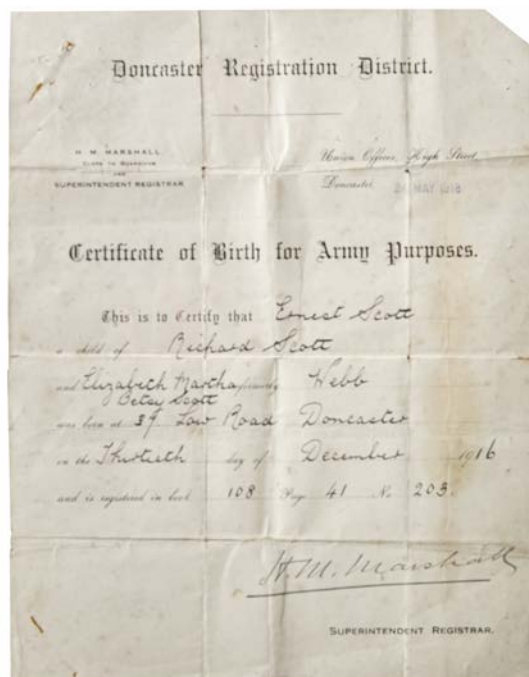 Doncaster Registration District.
H. M. MARSHALL
CLERK TO GUARDIANS
AND
SUPERINTENDENT REGISTRAR
Union Offices, High Street,
Doncaster, MAY 1918
Certificate of Birth for Army Purposes.
This is to Certify that Ernest Scott
a child of Richard Scott
and Elizabeth Martha formerly Webb
Betsy Scott
was born at 39 Low Road Doncaster
on the Thirtieth day of December 1916
and is registered in book 108 Page 41 No 203.
H. M. Marshall
SUPERINTENDENT REGISTRAR.